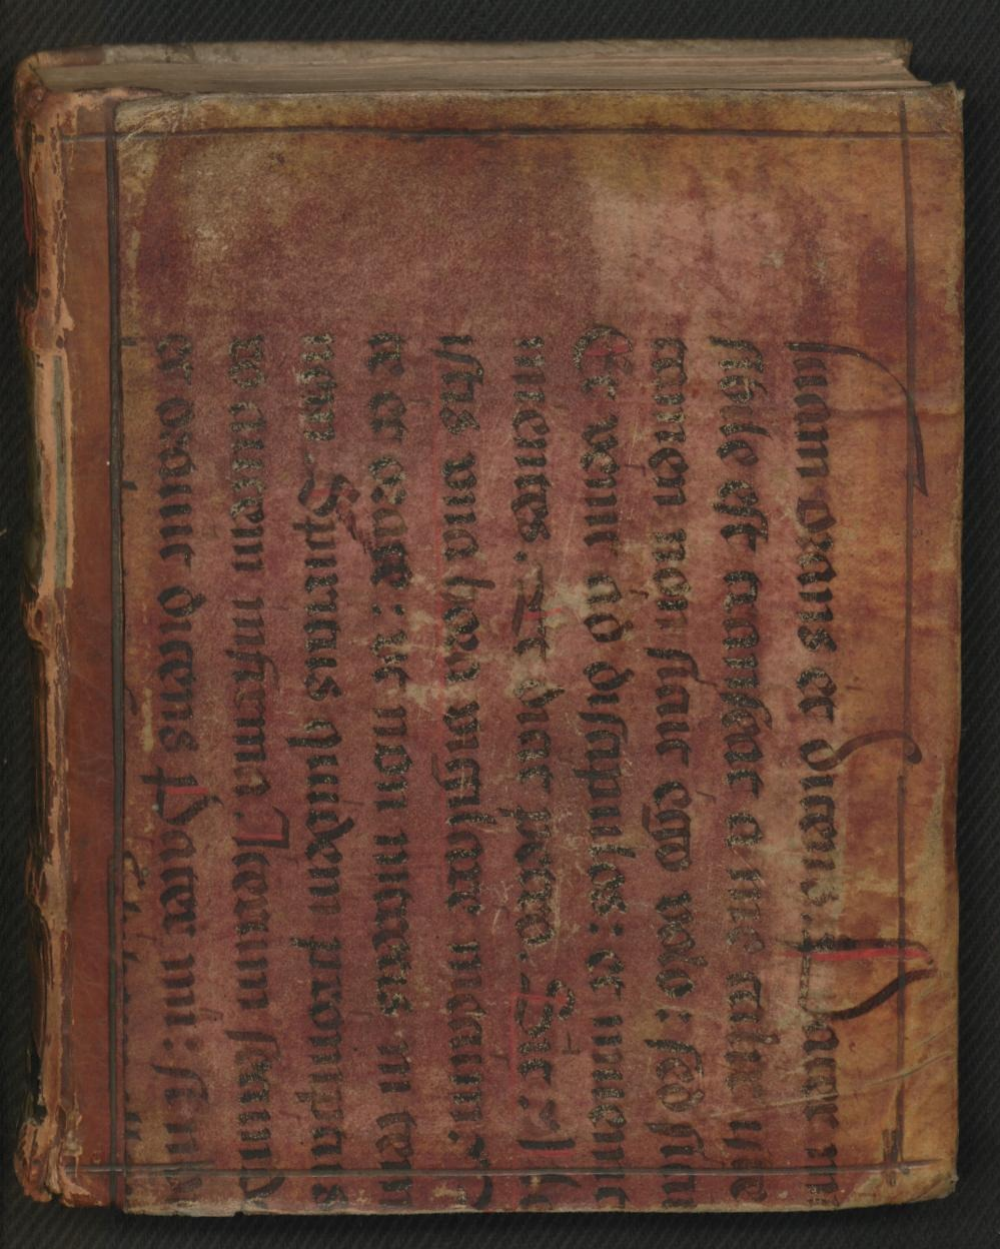 suam orans et dicens: Pater mi
sibile est transeat a me calix iste
tamen non sicut ego volo: sed sicut
Et venit ad discipulos: et invenit
mientes. Et dicit petro. Sic:
istis una hora vigilare mecum:
te et orate: ut non intretis in tem
nem Spiritus quidem promptus
ro autem infirma Iterum secund
et oravit dicens Pater mi: si n